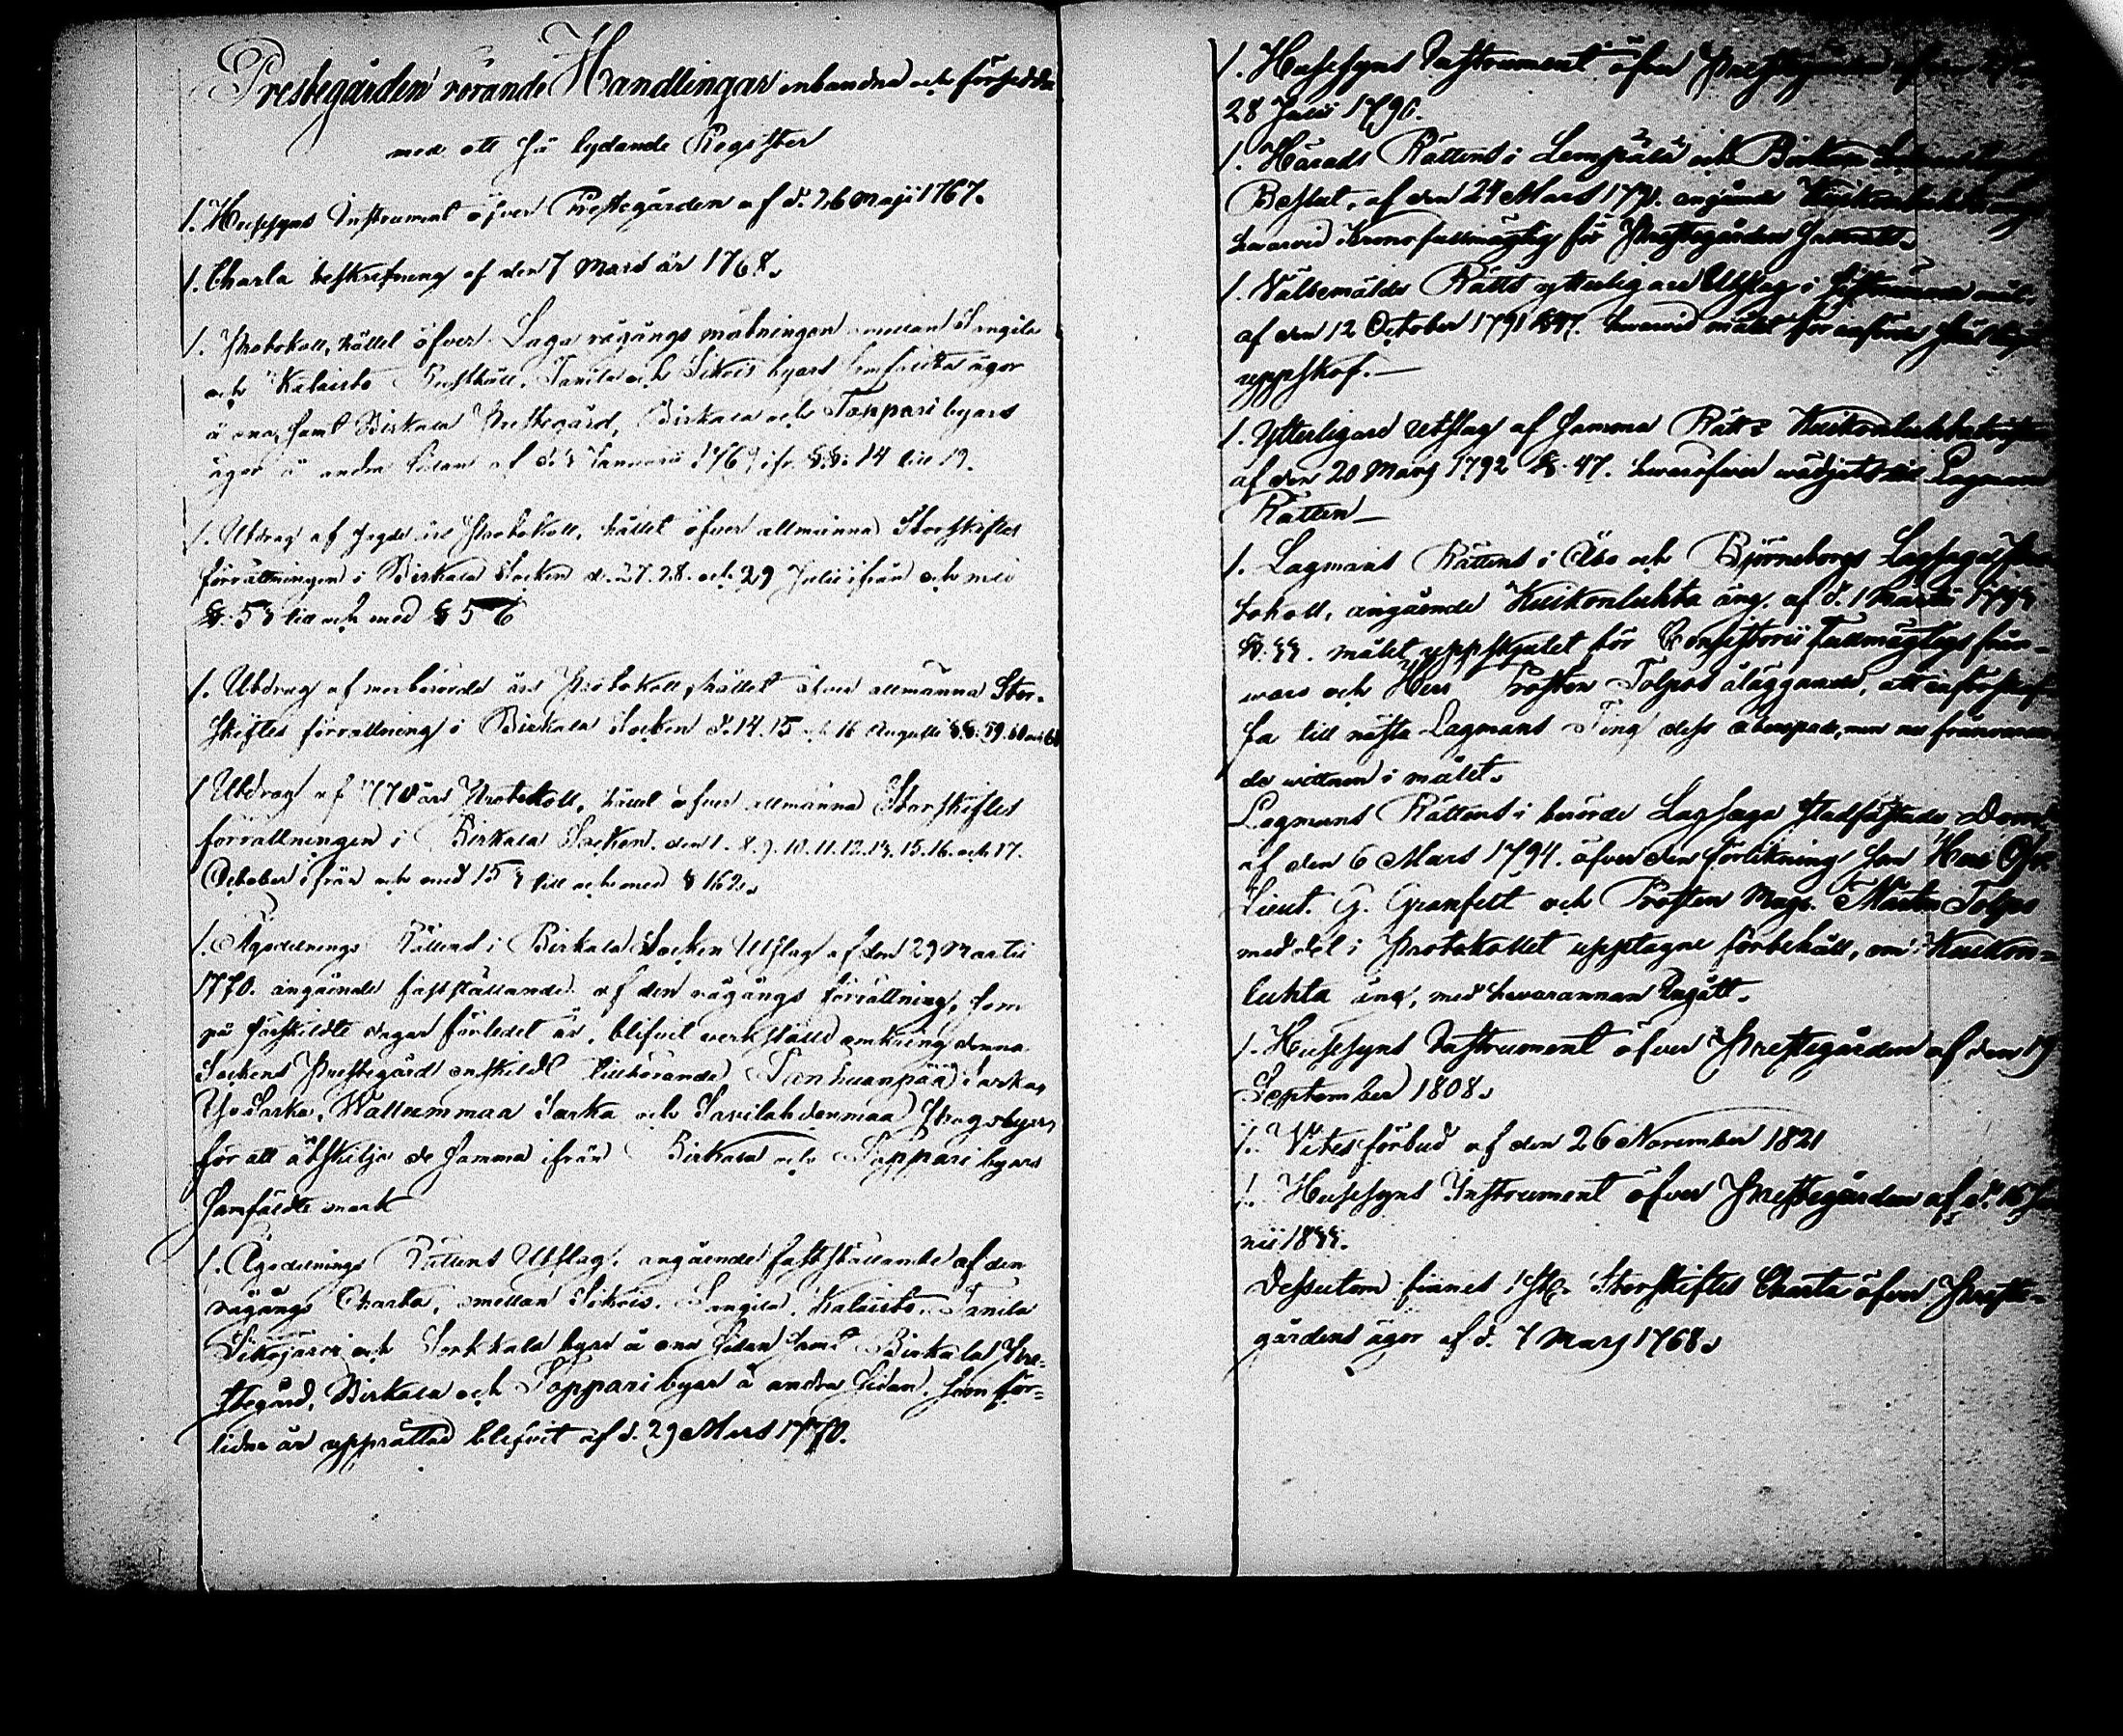 Prestegården rörande Handlingar inbundna och försedda
med ett så lydande Register
1. Hussyns Instrument öfver Prestegården af d. 26 Maji 1767.
1. Charta beskrifning af den 7 Mars år 1768.
1. Protokoll, hållet öfver Laga rågångs mätningen emellan Sangila
och Kalaisto Rusthåll, Tanila och Sikois byars samfälta ägor
å ena, samt Birkala Prestegård, Birkala och Tappari byars
ägor å andra sidan af d. Januarii 1769 ifr. §§: 14 till 19.
1. Utdrag af sagde års Protokoll, hållet öfver allmänna Storskiftes
förrättningen i Birkala Socken d. 27. 28. och 29 Julii ifrån och med
§. 53 till och med § 56
1. Utdrag af merberörde års Protokoll, hållet öfver allmänna Stor-
skiftes förrättning i Birkala Socken d. 14. 15 och 16 Augusti §§. 59. 60 och 61
1. Utdrag af 1770 års Protokoll, hållet öfver allmänna Storskiftes
förrättningen i Birkala Socken. den 1. 8. 9. 10. 11. 12. 13. 15. 16. och 17.
October ifrån och med 153 till och med § 162.
1. Ägodelnings Rättens i Birkala Socken Utslag af den 29 Martii
1770. angående fastställande af den rågångs förrättning, som
på särskildte dagar förledet år, blifvit verkställd omkring denna
Sockens Prestegård enskildt tillhörande Sarka,
Yso Sarka, Wallammaa Sarka och Savilahdenmaa
för att åtskilja de samma ifrån Birkala och Tappari byars
samfäldte mark
1. Ägodelnings Rättens Utslag, angående fastställande af den
rågångs Charta, emellan Sikois, Sangila, Kalaisto, Tanila
Sikojärvi och Sorkkala byar å ena sidan samt Birkala Pre-
stegård, Birkala och Tappari byar å andra sidan, som för-
lidne år upprättad blifvit af d. 29 Mars 1770.
1. Husesyns Instrument öfver Prestegården af den
28 Julii 1790.
1. Härads Rättens i Lempälä och Birkala
Beslut, af den 24 Mars 1791. angående
hvarvid Krono fullmägtig för Prestegården
1. Välbemälde Rätts ytterligare Utslag i mål
af den 12 October 1791 §47. hvarvid målet
uppskof.—
1. Ytterligare Utslag af samma Rätt
af den 20 Mars 1792 §. 47. hvaröfver wädjats till Lagmans
Rätten—
1. Lagmans Rättens i Åbo och Björneborgs Lagsagas Pro-
tokoll, angående Kuikonluhta äng, af d. 1 Martii
§. 33. målet uppskjutet för Consistorii Fullmägtigs från-
waro och Herr Prosten Tolpos åläggande, att införskaf-
fa till nästa Lagmans Ting dess åberopade, men nu frånvaran-
de wittnen i målet.
Lagmans Rättens i berörde Lagsaga stadfästade Dom
af den 6 Mars 1794. öfver den förlikning som Herr Öfv.
Lieut. G. Granfelt och Prosten Mag. Martin Tolpo
med del i Protokollet upptagne förbehåll, om Kuikon-
luhta äng, med hvarannan Ingått.
1. Husesyns Instrument öfver Prestegården af den 19
September 1808.
1. Vitesförbud af den 26 November 1821
1. Husesyns Instrument öfver Prestegården af d. 16 Ju-
nii 1833.
Dessutom finnes 1 st. Storskiftes Charta öfver Preste-
gårdens ägor af d. 7 Mars 1768.